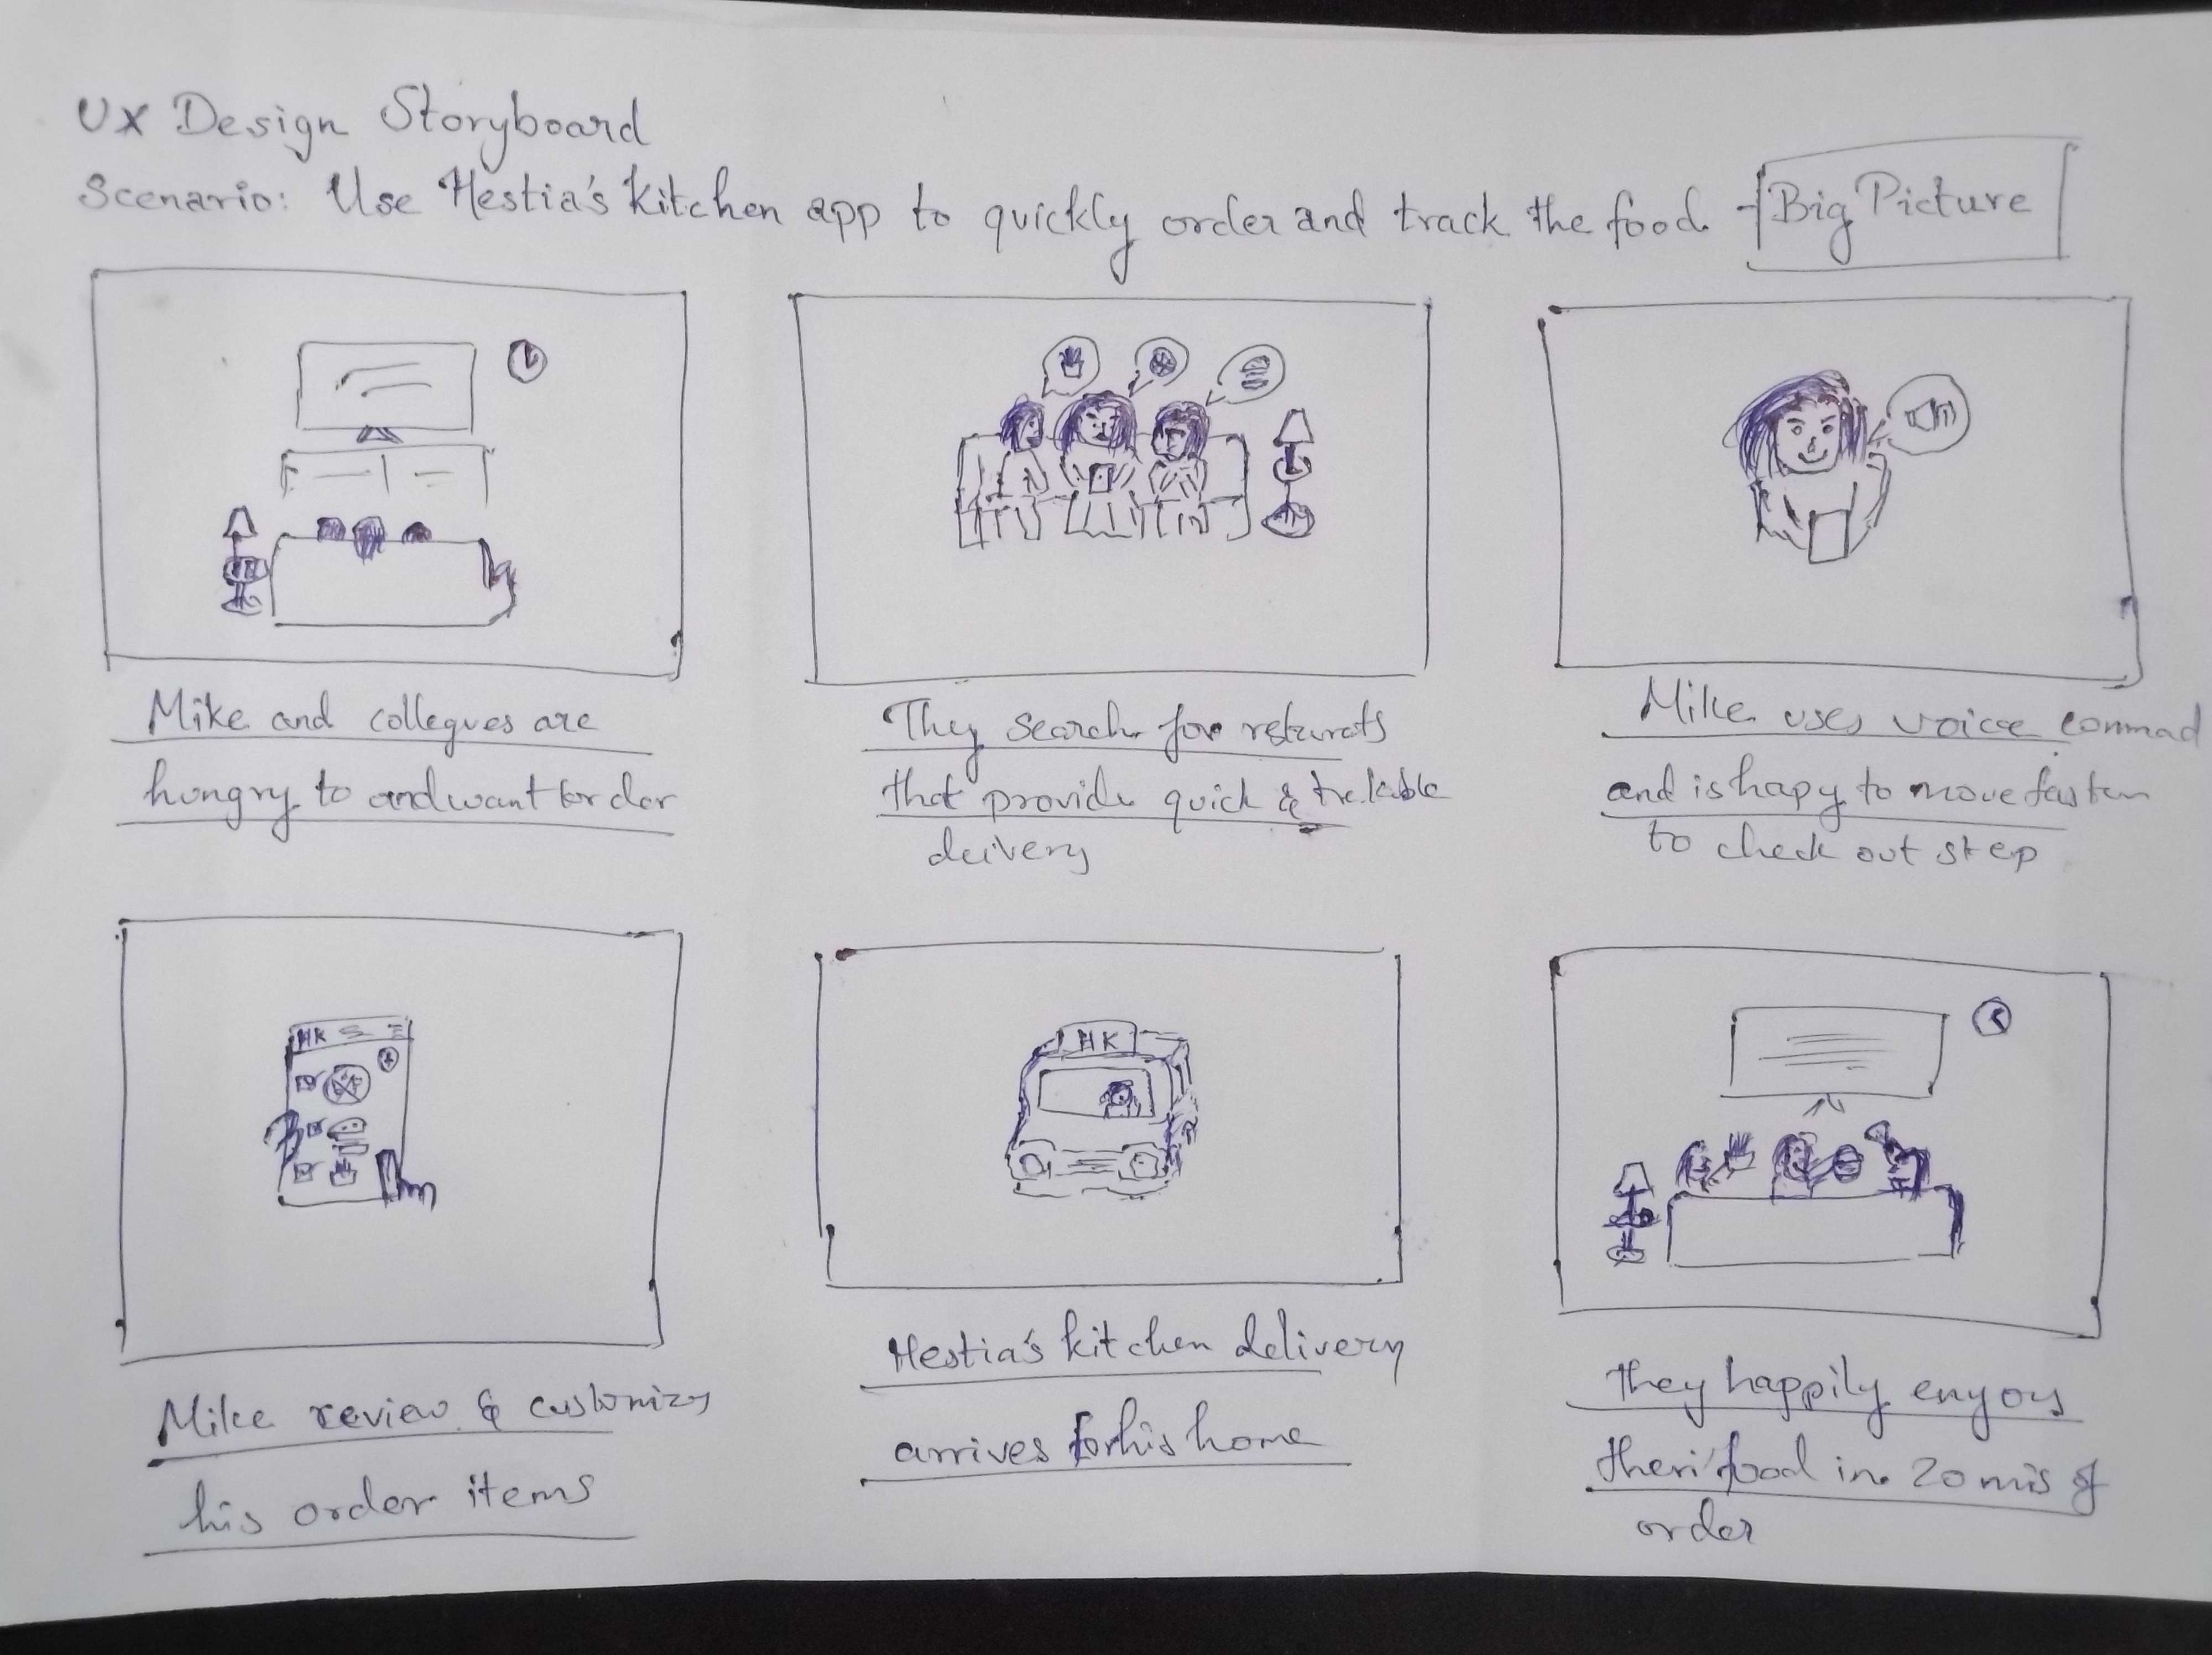 UX Design Storyboard
Scenario: Use Hestia's Kitchen app to quickly order and track the food. - Big Picture
Mike and collegues are
hungry to and want to order
They search for returats
that provide quick & trelable
deivery
Mike uses voice commad
and is hapy to move faster
to check out step
HK
HK
Mike review & customizes
his order items
Hestia's kitchen delivery
arrives for his home
They happily enyoy
theri food in 20 mis of
order